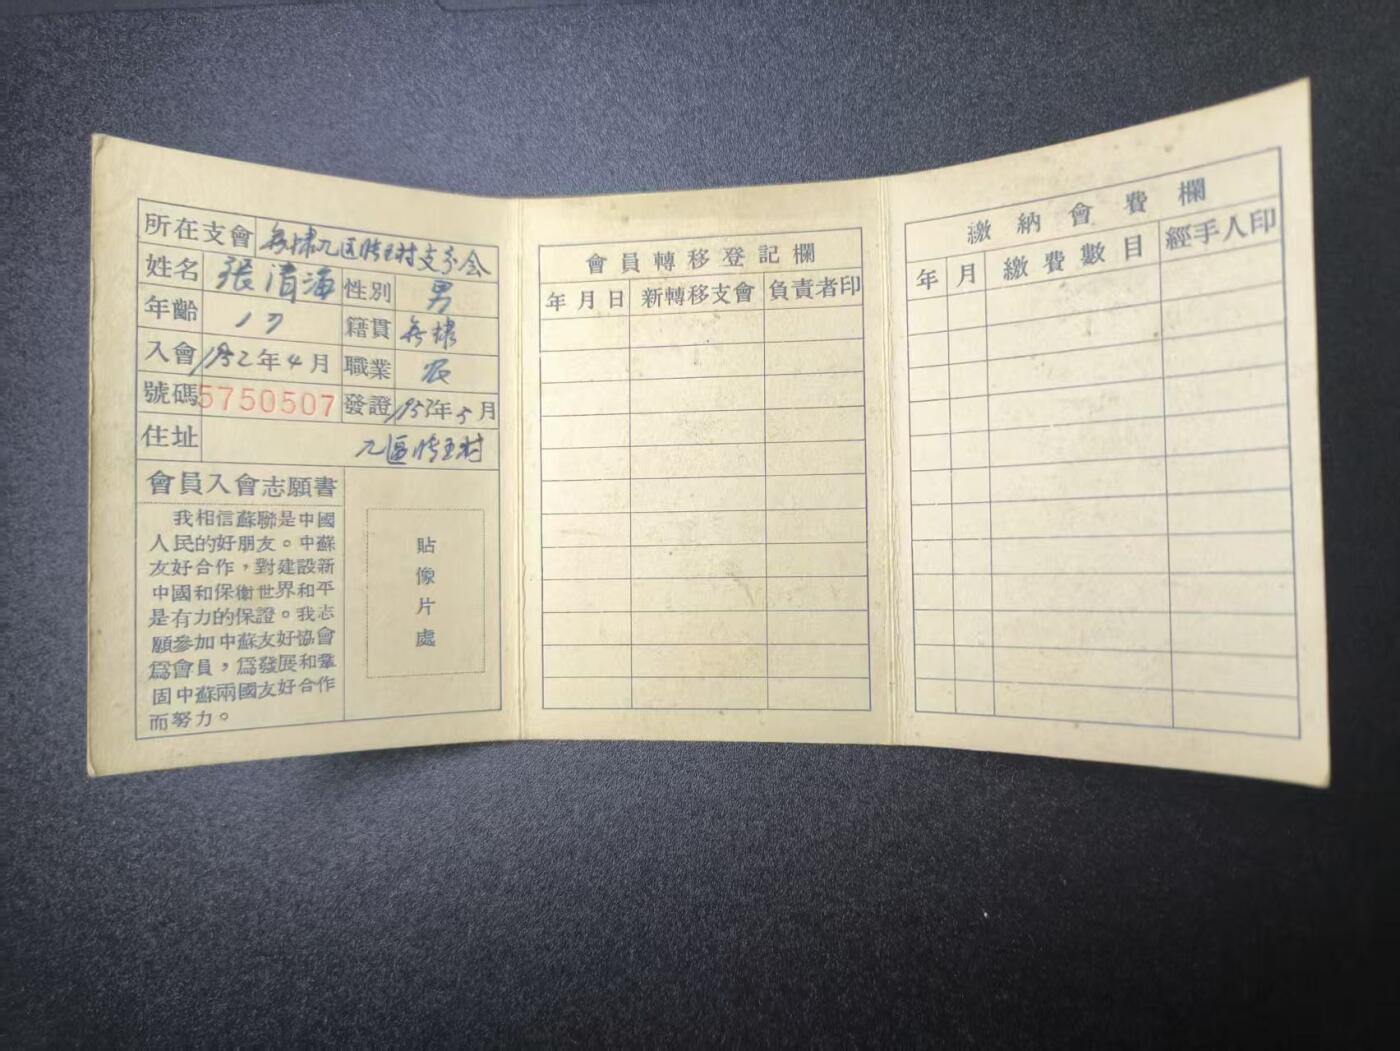 所在支會 無棣九區 村支分会
姓名 張清海 性別 男
年齡 17 籍貫 無棣
入會 1952年4月 職業 农
號碼 5750507 發證 1952年5月
住址 九區 村
會員入會志願書
我相信蘇聯是中國
人民的好朋友。中蘇
友好合作，對建設新
中國和保衛世界和平
是有力的保證。我志
願參加中蘇友好協會
爲會員，爲發展和鞏
固中蘇兩國友好合作
而努力。
貼
像
片
處
會員轉移登記欄
年月日 新轉移支會 負責者印
繳納會費欄
年 月 繳費數目 經手人印